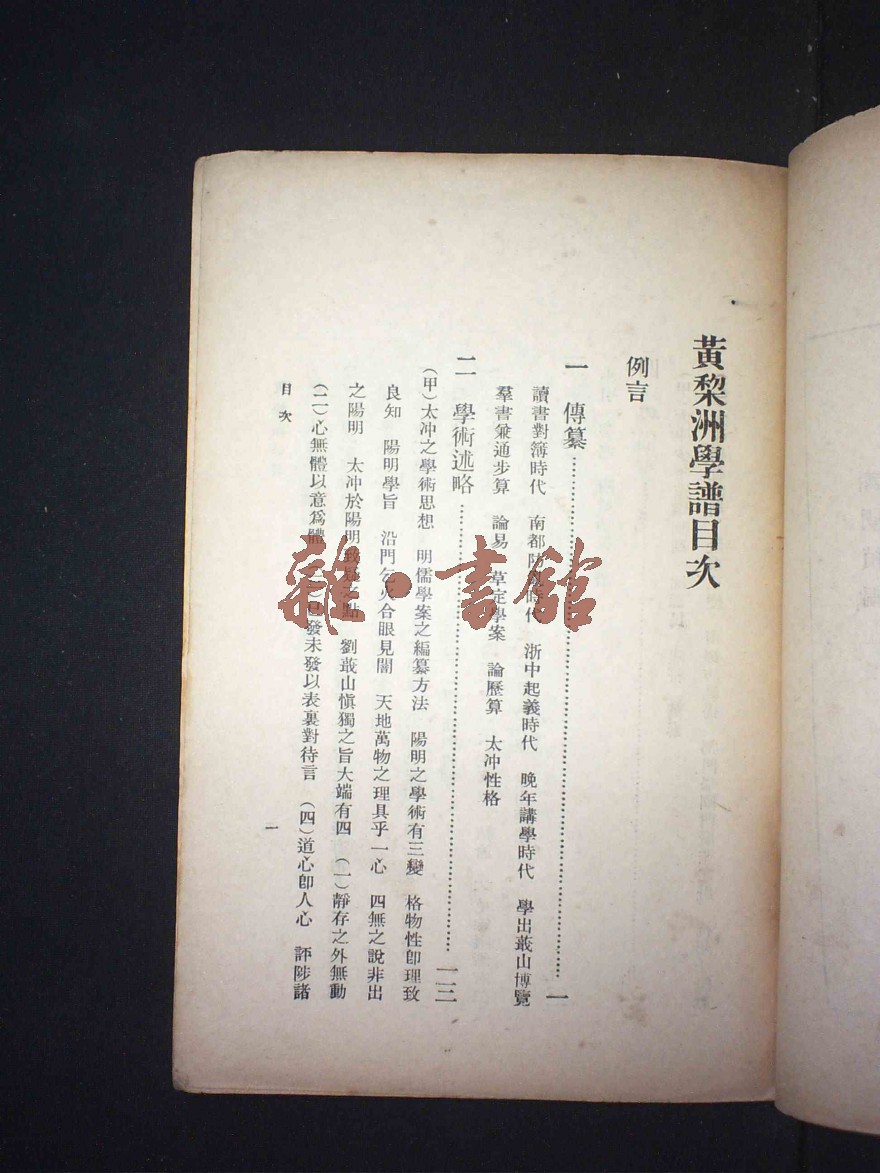 黃黎洲學譜目次
例言
一　傳纂……一
讀書對簿時代　南都防亂時代　浙中起義時代　晚年講學時代　學出蕺山博覽
羣書兼通步算　論易　草定學案　論曆算　太冲性格
二　學術述略……一三
（甲）太冲之學術思想　明儒學案之編纂方法　陽明之學術有三變　格物性卽理致
良知　陽明學旨　沿門乞火合眼見闇　天地萬物之理具乎一心　四無之說非出
之陽明　太冲於陽明致疑之點　劉蕺山愼獨之旨大端有四　（一）靜存之外無動
（二）心無體以意爲體　已發未發以表裏對待言　（四）道心卽人心　評陟諸
目次
一
雜·書館